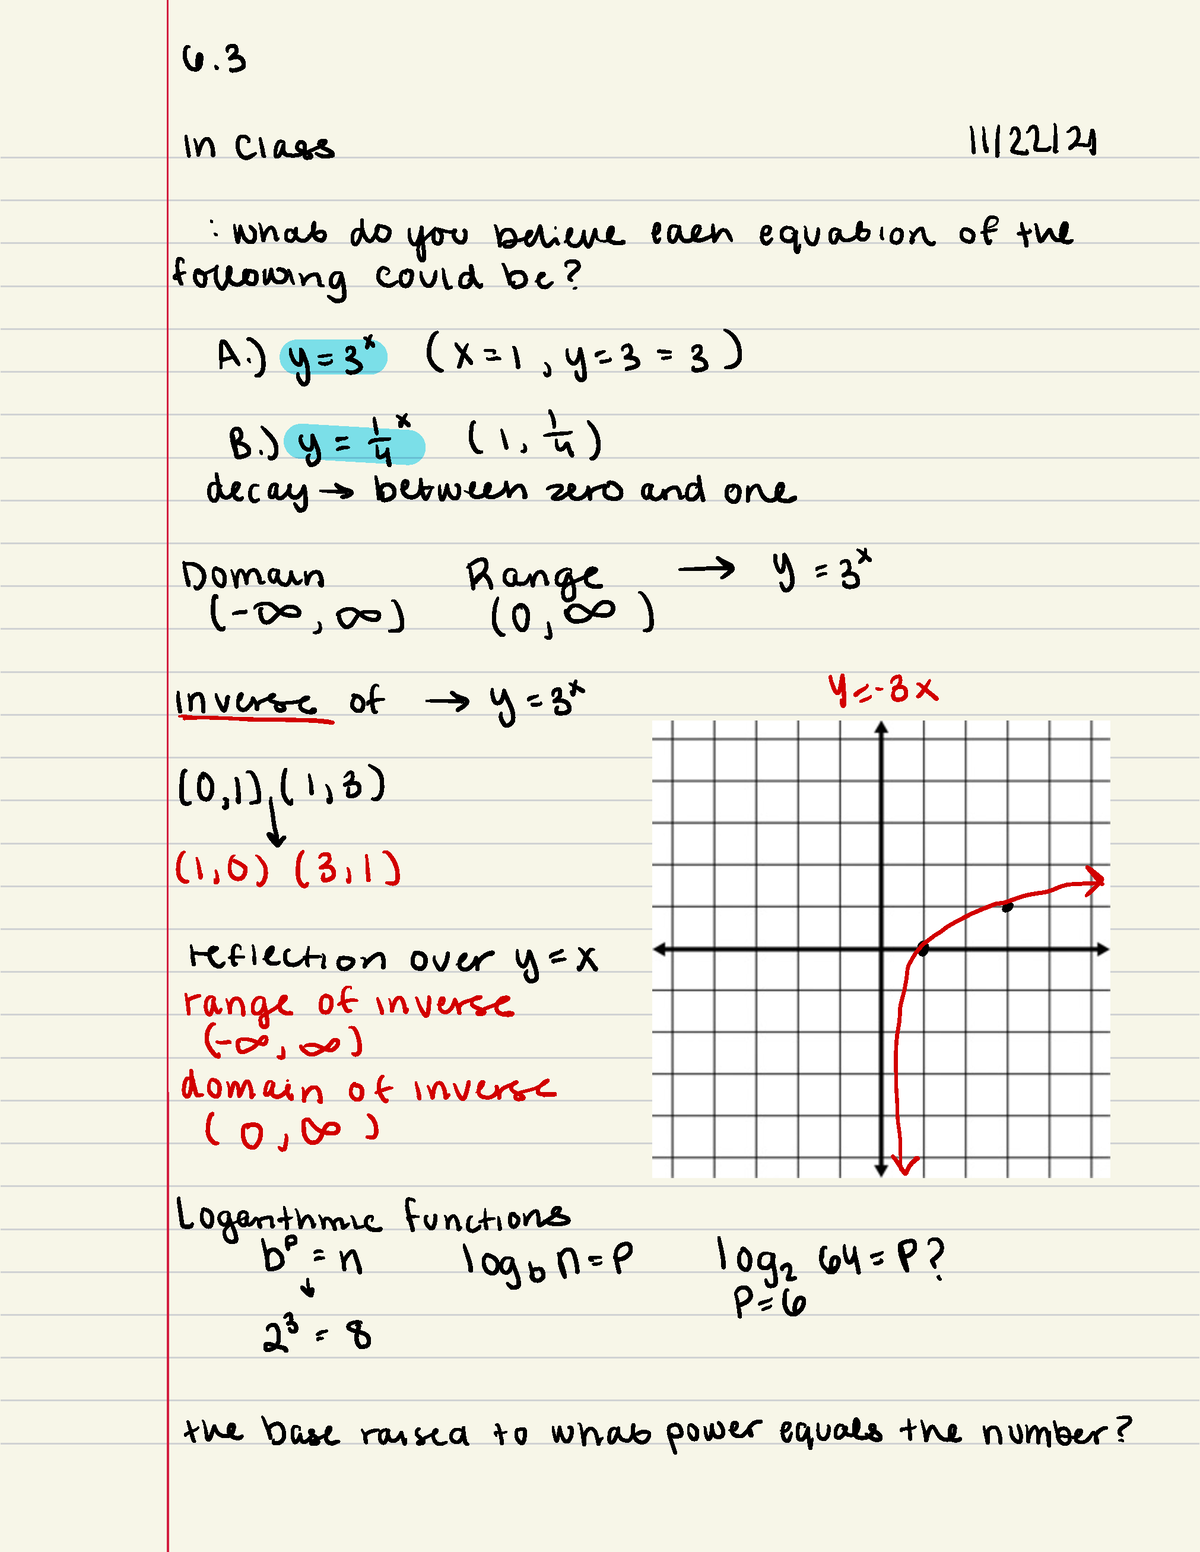 6.3
In Class 11/22/21
: what do you believe each equation of the
following could be?
A.) y = 3ˣ (x = 1, y = 3 = 3)
B.) y = 1/4ˣ (1, 1/4)
decay → between zero and one
Domain Range → y = 3ˣ
(-∞, ∞) (0, ∞)
inverse of → y = 3ˣ
y = -3x
(0,1), (1,3)
↓
(1,0) (3,1)
reflection over y = x
range of inverse
(-∞, ∞)
domain of inverse
(0, ∞)
Logarithmic functions
bᵖ = n log_b n = P log₂ 64 = P?
↓ P = 6
2³ = 8
the base raised to what power equals the number?